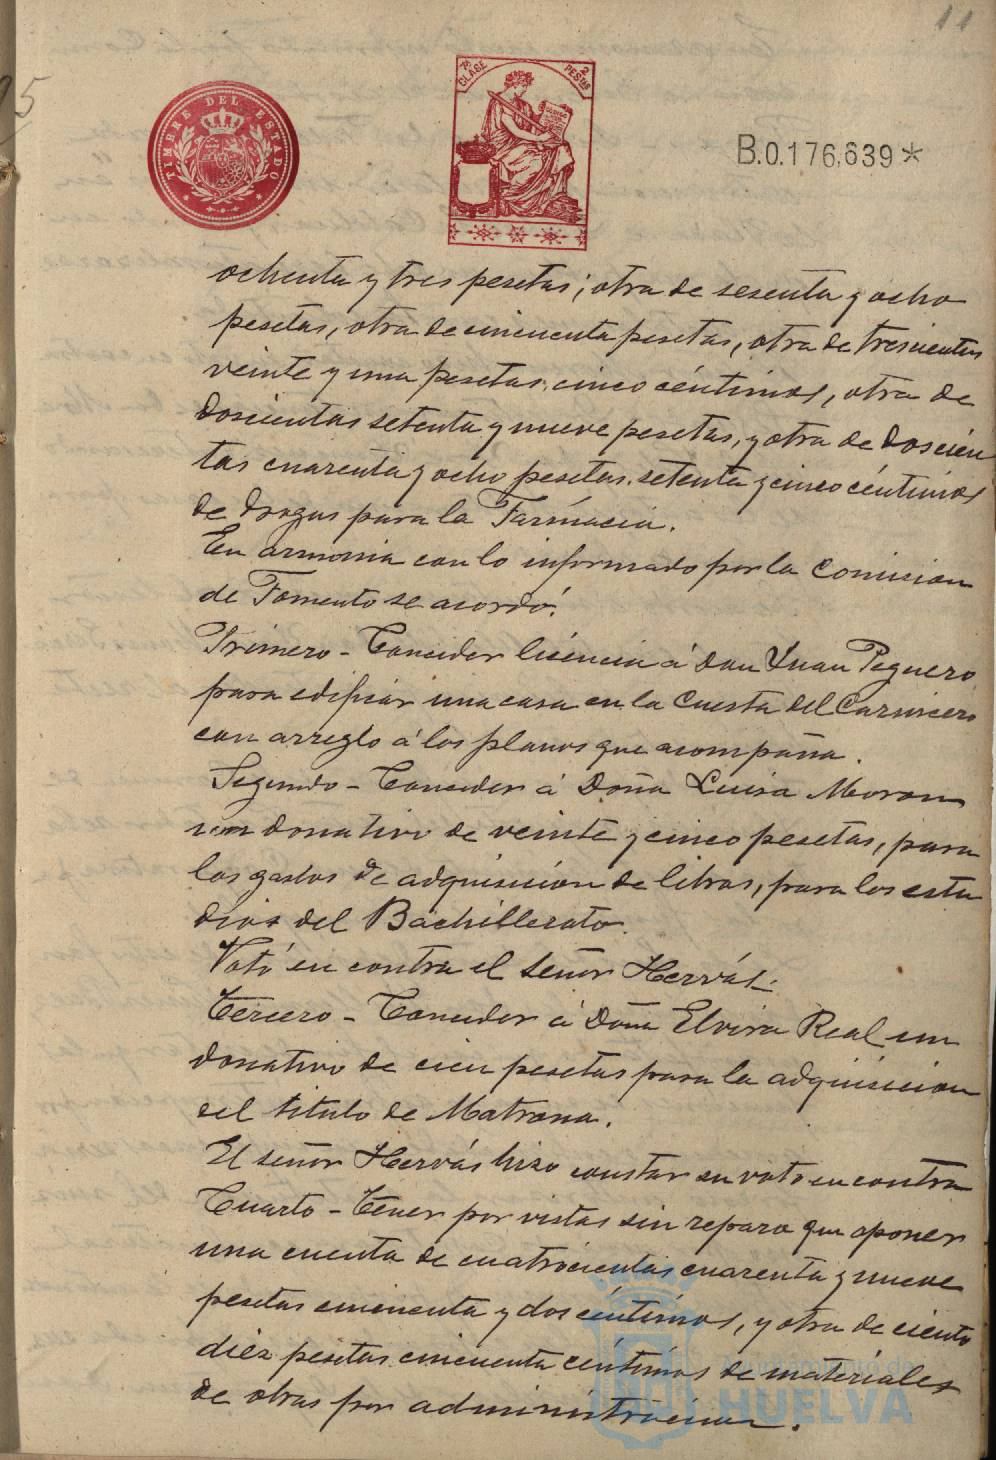 11
95
TIMBRE DEL ESTADO
7ª CLASE
2 PESTAS
B.0.176,639*
ochenta y tres pesetas; otra de sesenta y ocho
pesetas, otra de cincuenta pesetas, otra de trescientas
veinte y una pesetas cinco céntimos, otra de
doscientas setenta y nueve pesetas, y otra de doscien
tas cuarenta y ocho pesetas setenta y cinco céntimos
de drogas para la Farmacia.
En armonia con lo informado por la Comision
de Fomento se acordó:
Primero - Conceder licencia á Don Juan Peguero
para edificar una casa en la Cuesta del Carnicero
con arreglo á los planos que acompaña.
Segundo - Conceder á Doña Luisa Moron
un donativo de veinte y cinco pesetas, para
los gastos de adquisicion de libros, para los estu
dios del Bachillerato.
Votó en contra el señor Hervás.
Tercero - Conceder á Doña Elvira Real un
donativo de cien pesetas para la adquisicion
del titulo de Matrona.
El señor Hervás hizo constar su voto en contra
Cuarto - Tener por vistas sin reparo que oponer
una cuenta de cuatrocientas cuarenta y nueve
pesetas cincuenta y dos céntimos, y otra de ciento
diez pesetas cincuenta céntimos de materiales
de obras por administracion.
Ayuntamiento de
HUELVA